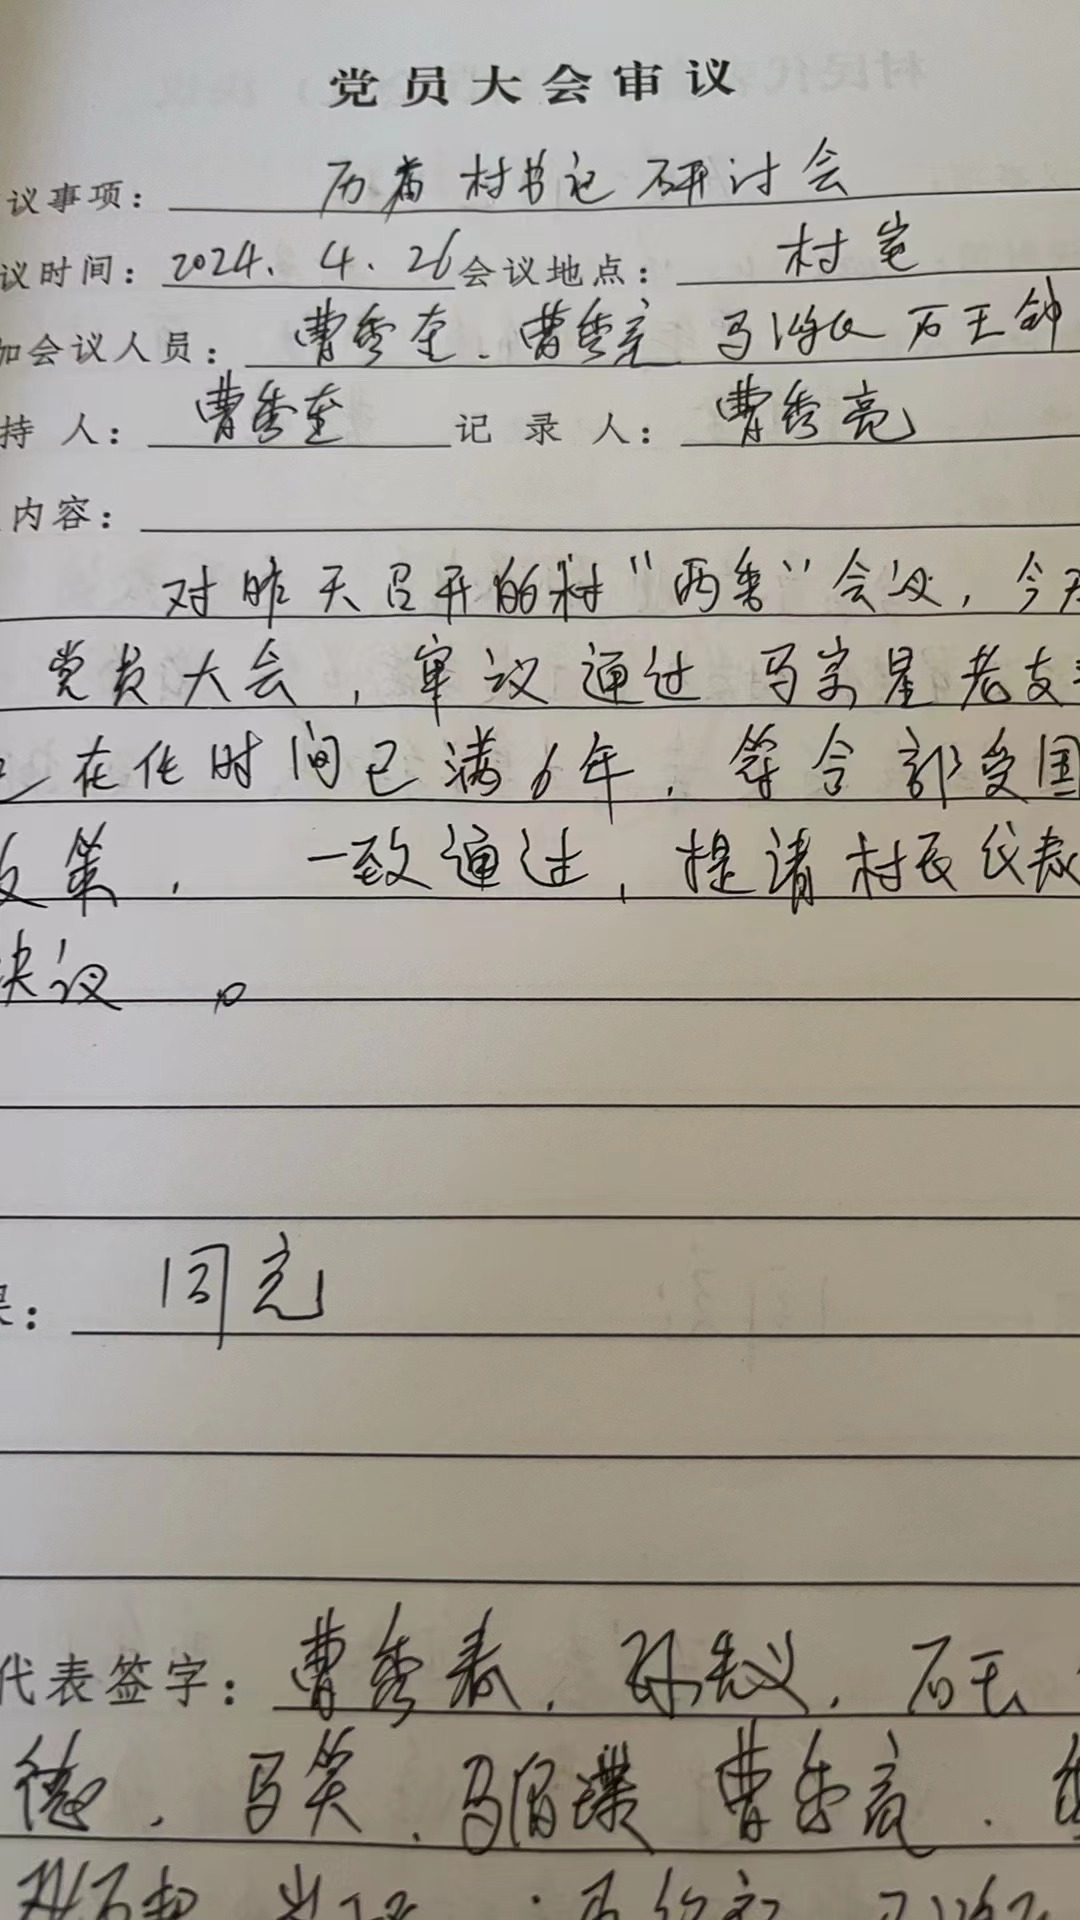 党员大会审议
议事项： 历届村书记研讨会
议时间：2024.4.26会议地点： 村室
加会议人员： 曹秀奎、曹秀亮 马 石玉钟
持人： 曹秀奎 记录人： 曹秀亮
内容：
对昨天召开的村“两委”会议，今天
党员大会，审议通过马宗星老支
在任时间已满6年，符合部受国
政策， 一致通过，提请村民代表
决议。
果： 同意
代表签字：曹秀春，孙先义，石玉
德，马笑，马 曹秀亮．